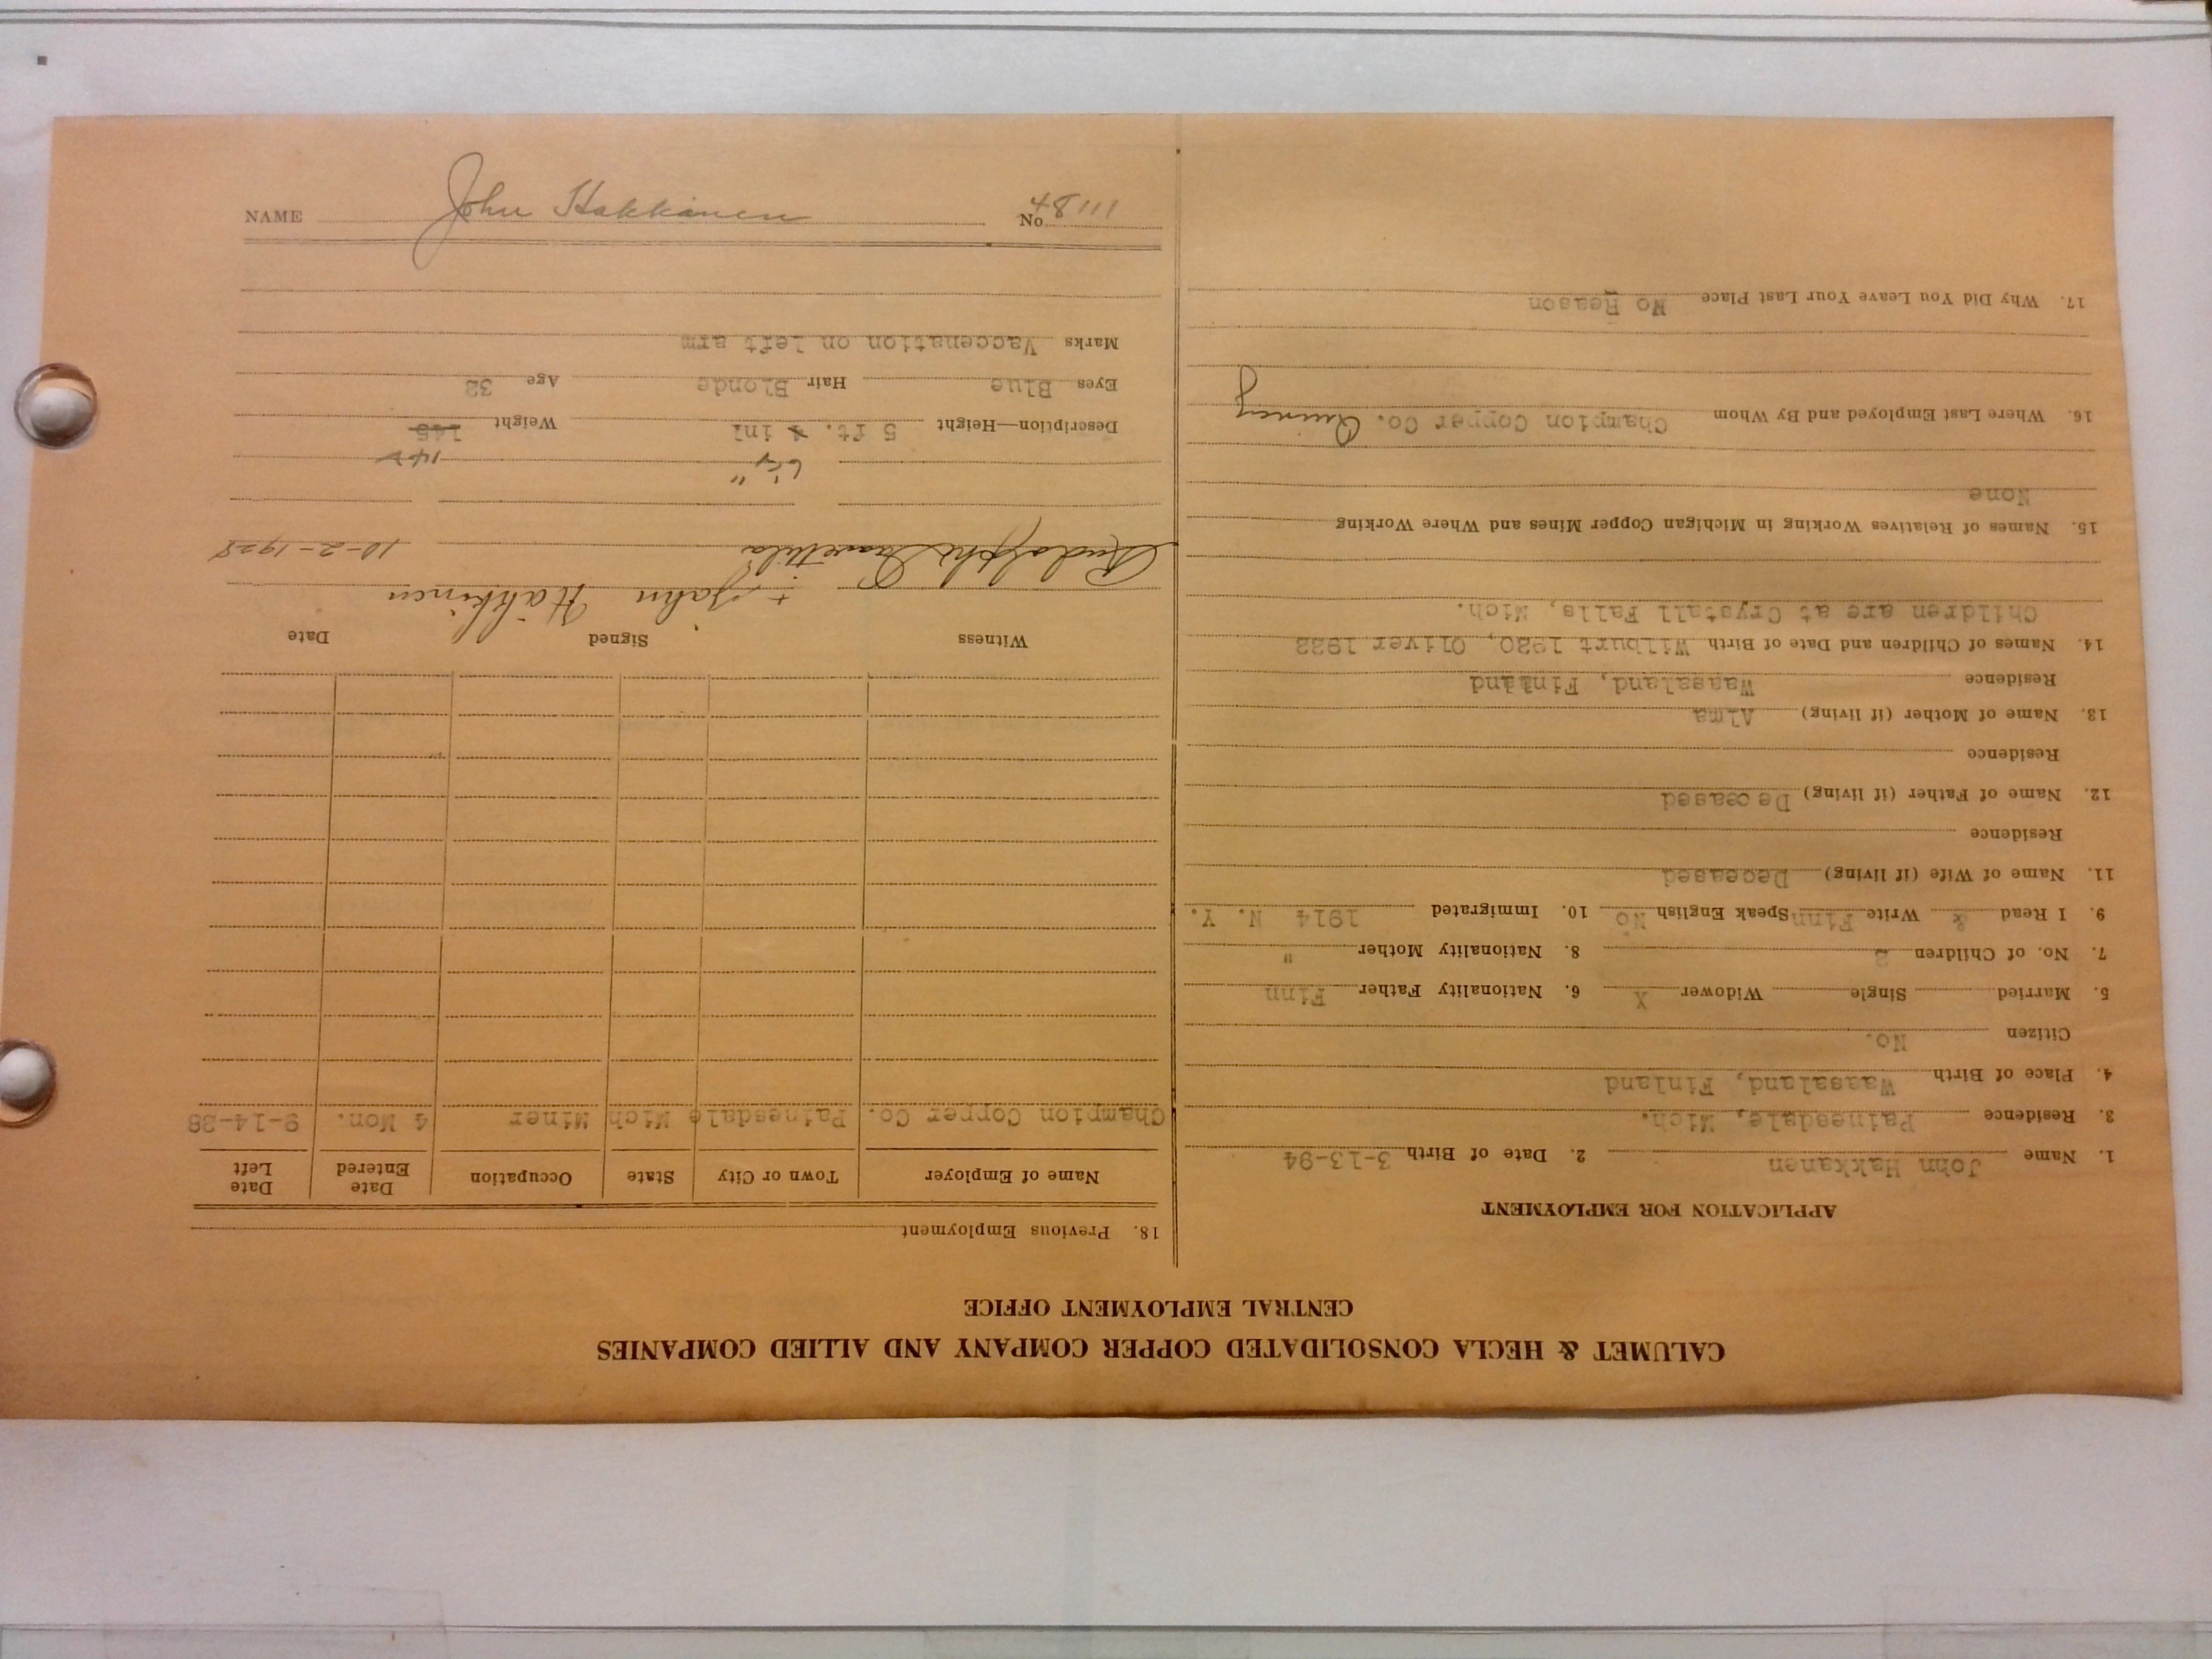 CALUMET & HECLA CONSOLIDATED COPPER COMPANY AND ALLIED COMPANIES
CENTRAL EMPLOYMENT OFFICE
APPLICATION FOR EMPLOYMENT
1. Name John Hakkanen 2. Date of Birth 3-13-94
3. Residence Painesdale, Mich.
4. Place of Birth Waasaland, Finland
Citizen No.
5. Married Single Widower X 6. Nationality Father Finn
7. No. of Children 2 8. Nationality Mother "
9. I Read & Write Finn Speak English No 10. Immigrated 1914 N. Y.
11. Name of Wife (if living) Deceased
Residence
12. Name of Father (if living) Deceased
Residence
13. Name of Mother (if living) Alma
Residence Waasaland, Finland
14. Names of Children and Date of Birth Wilburt 1920, Oliver 1922
Children are at Crystall Falls, Mich.
15. Names of Relatives Working in Michigan Copper Mines and Where Working
None
16. Where Last Employed and By Whom Champion Copper Co. Quincy
17. Why Did You Leave Your Last Place No Reason
18. Previous Employment
Name of Employer Town or City State Occupation Date Entered Date Left
Champion Copper Co. Painesdale Mich Miner 4 Mon. 9-14-28
Witness Signed Date
+ John Häkkinen
Rudolph 10-2-1928
Description—Height 5 ft. 4 in. Weight 145
Eyes Blue Hair Blonde Age 32
Marks Vaccenation on left arm
NAME John Hakkinen No. 48111